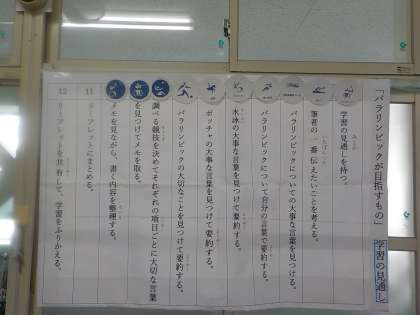 「パラリンピックが目指すもの」 学習の見通し
学習の見通しを持つ。
筆者の一番伝えたいことを考える。
パラリンピックについての大事な言葉を見つける。
パラリンピックについて自分の言葉で要約する。
水泳の大事な言葉を見つけて要約する。
ボッチャの大事な言葉を見つけて要約する。
パラリンピックの大切なことを見つけて要約する。
調べる競技を決めてそれぞれの項目ごとに大切な言葉
を見つけてメモを取る。
メモを見ながら、書く内容を整理する。
11 リーフレットにまとめる。
12 リーフレットを共有して、学習をふりかえる。